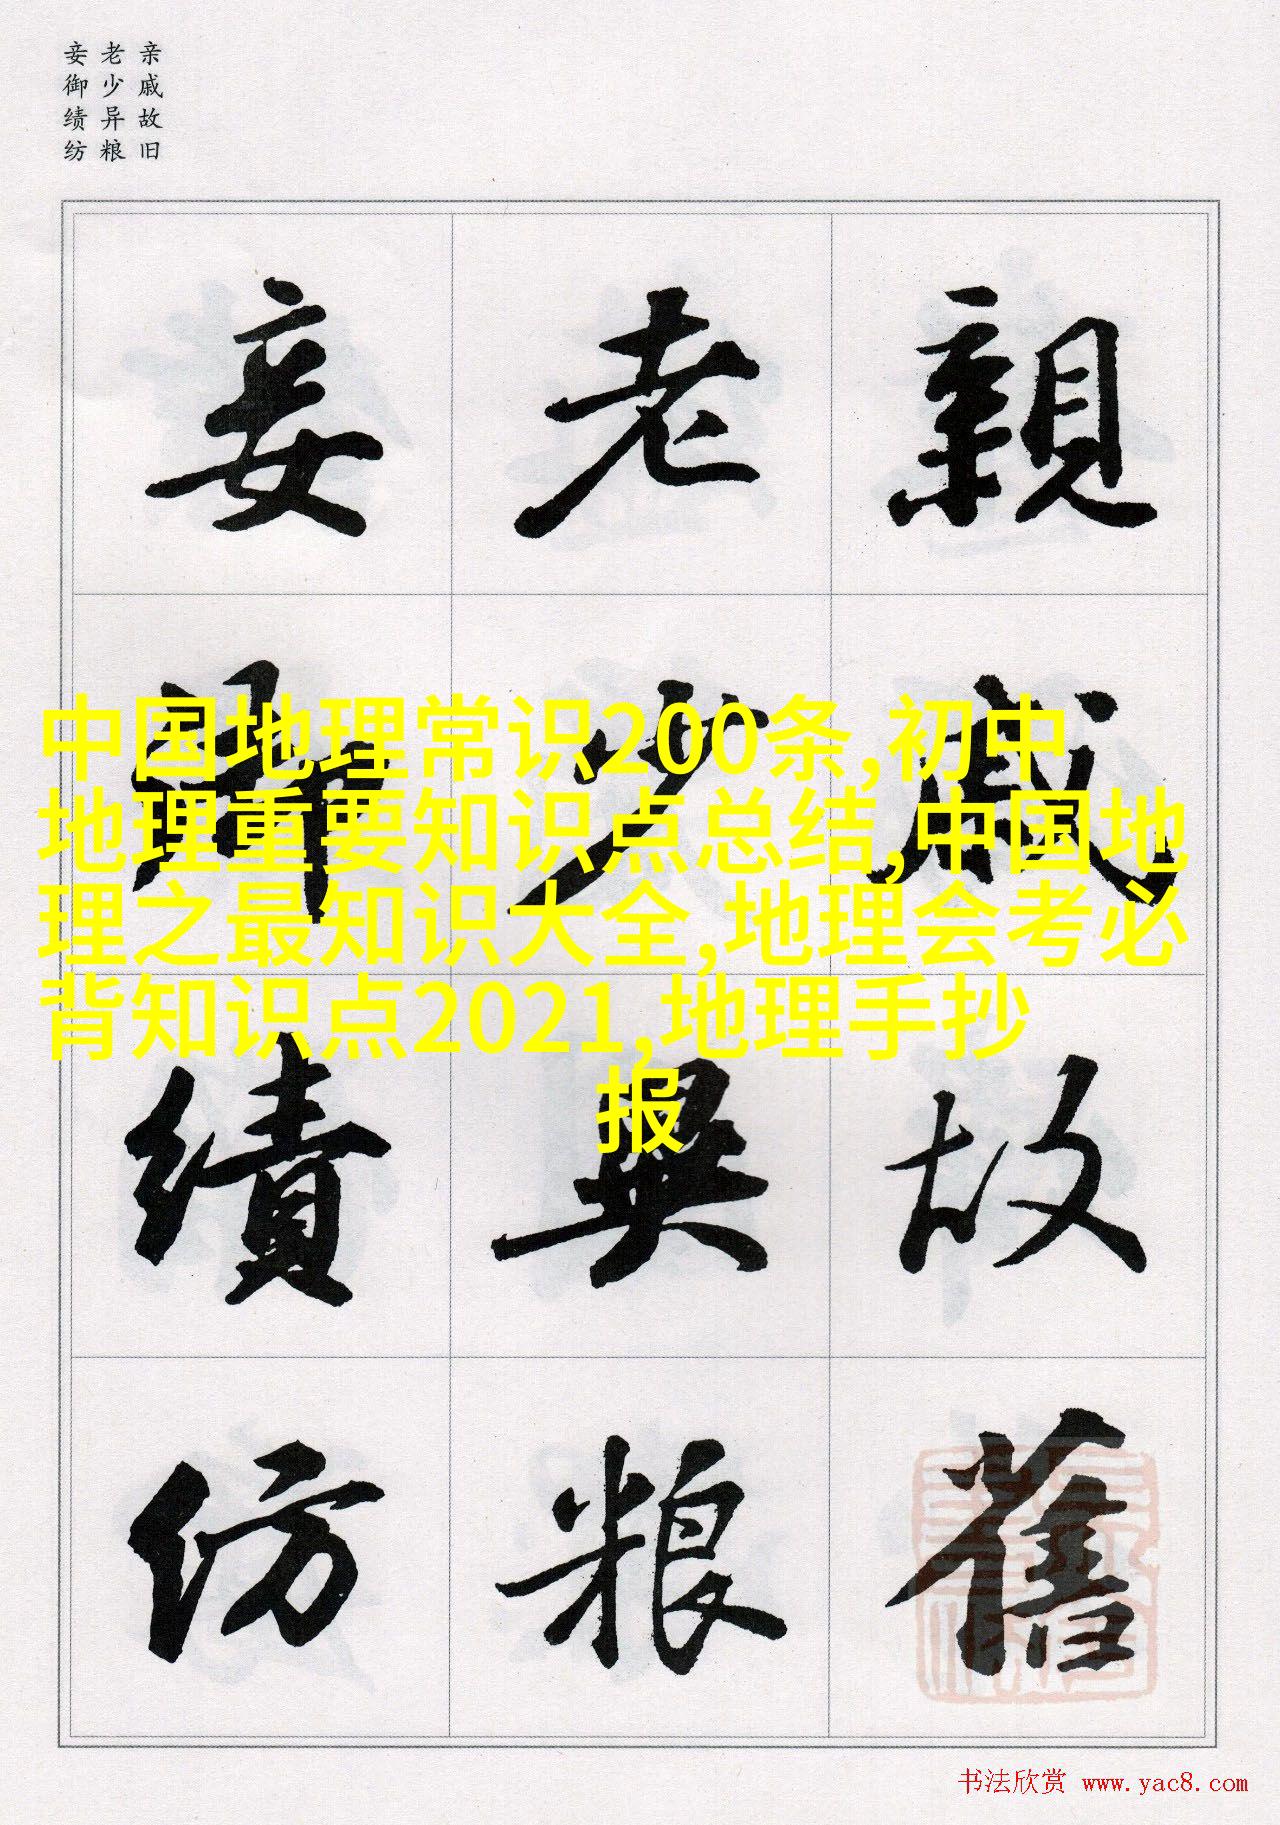 亲戚故旧
老少异粮
妾御绩纺
親戚故舊
老少異粮
妾御績纺
中国地理常识200条,初中
地理重要知识点总结,中国地
理之最知识大全,地理会考必
背知识点2021,地理手抄
报
书法欣赏 www.yac8.com